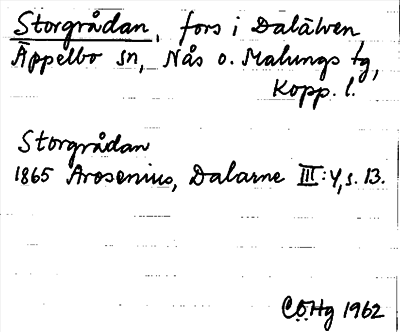 Storgrådan, fors i Dalälven
Äppelbo sn, Nås o. Malungs tg,
Kopp. l.
Storgrådan
1865 Arosenius, Dalarne III:4, s. 13.
CÖHg 1962